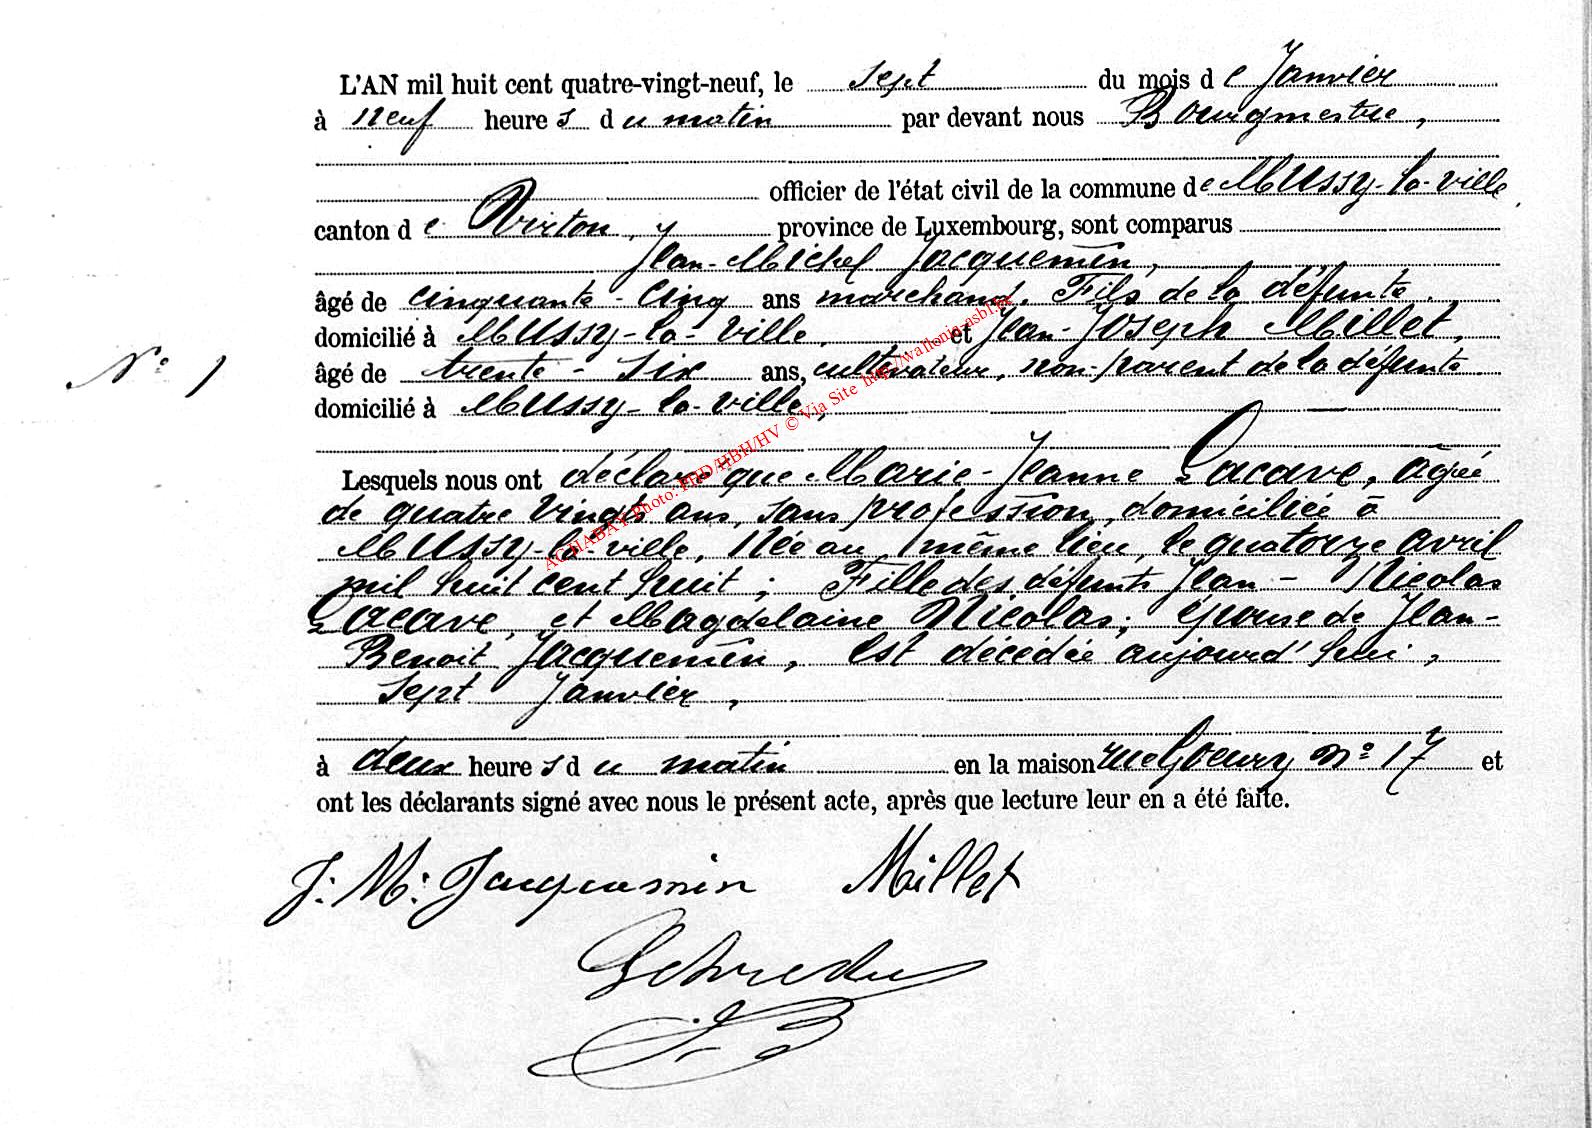 L'AN mil huit cent quatre-vingt-neuf, le sept du mois de Janvier
à neuf heures du matin par devant nous Bourgmestre,
officier de l'état civil de la commune de Mussy-la-ville,
canton de Virton, province de Luxembourg, sont comparus
Jean-Michel Jacquemin,
âgé de cinquante-cinq ans marchand, Fils de la défunte,
domicilié à Mussy-la-Ville, et Jean-Joseph Millet,
N° 1
âgé de trente-six ans, cultivateur, non-parent de la défunte
domicilié à Mussy-la-ville,
Lesquels nous ont déclaré que Marie-Jeanne Lacave, âgée
de quatre vingts ans, sans profession, domiciliée à
Mussy-la-ville, Née au même lieu, le quatorze avril
mil huit cent huit; Fille des défunts Jean-Nicolas
Lacave, et Magdelaine Nicolas; épouse de Jean-
Benoit Jacquemin, est décédée aujourd'hui,
sept Janvier,
à deux heures du matin en la maison rue N° 17 et
ont les déclarants signé avec nous le présent acte, après que lecture leur en a été faite.
J: M: Jacquemin Millet
AGHABAY Photo: PHD/HBH/HV © Via Site http://wallonia-asbl.be